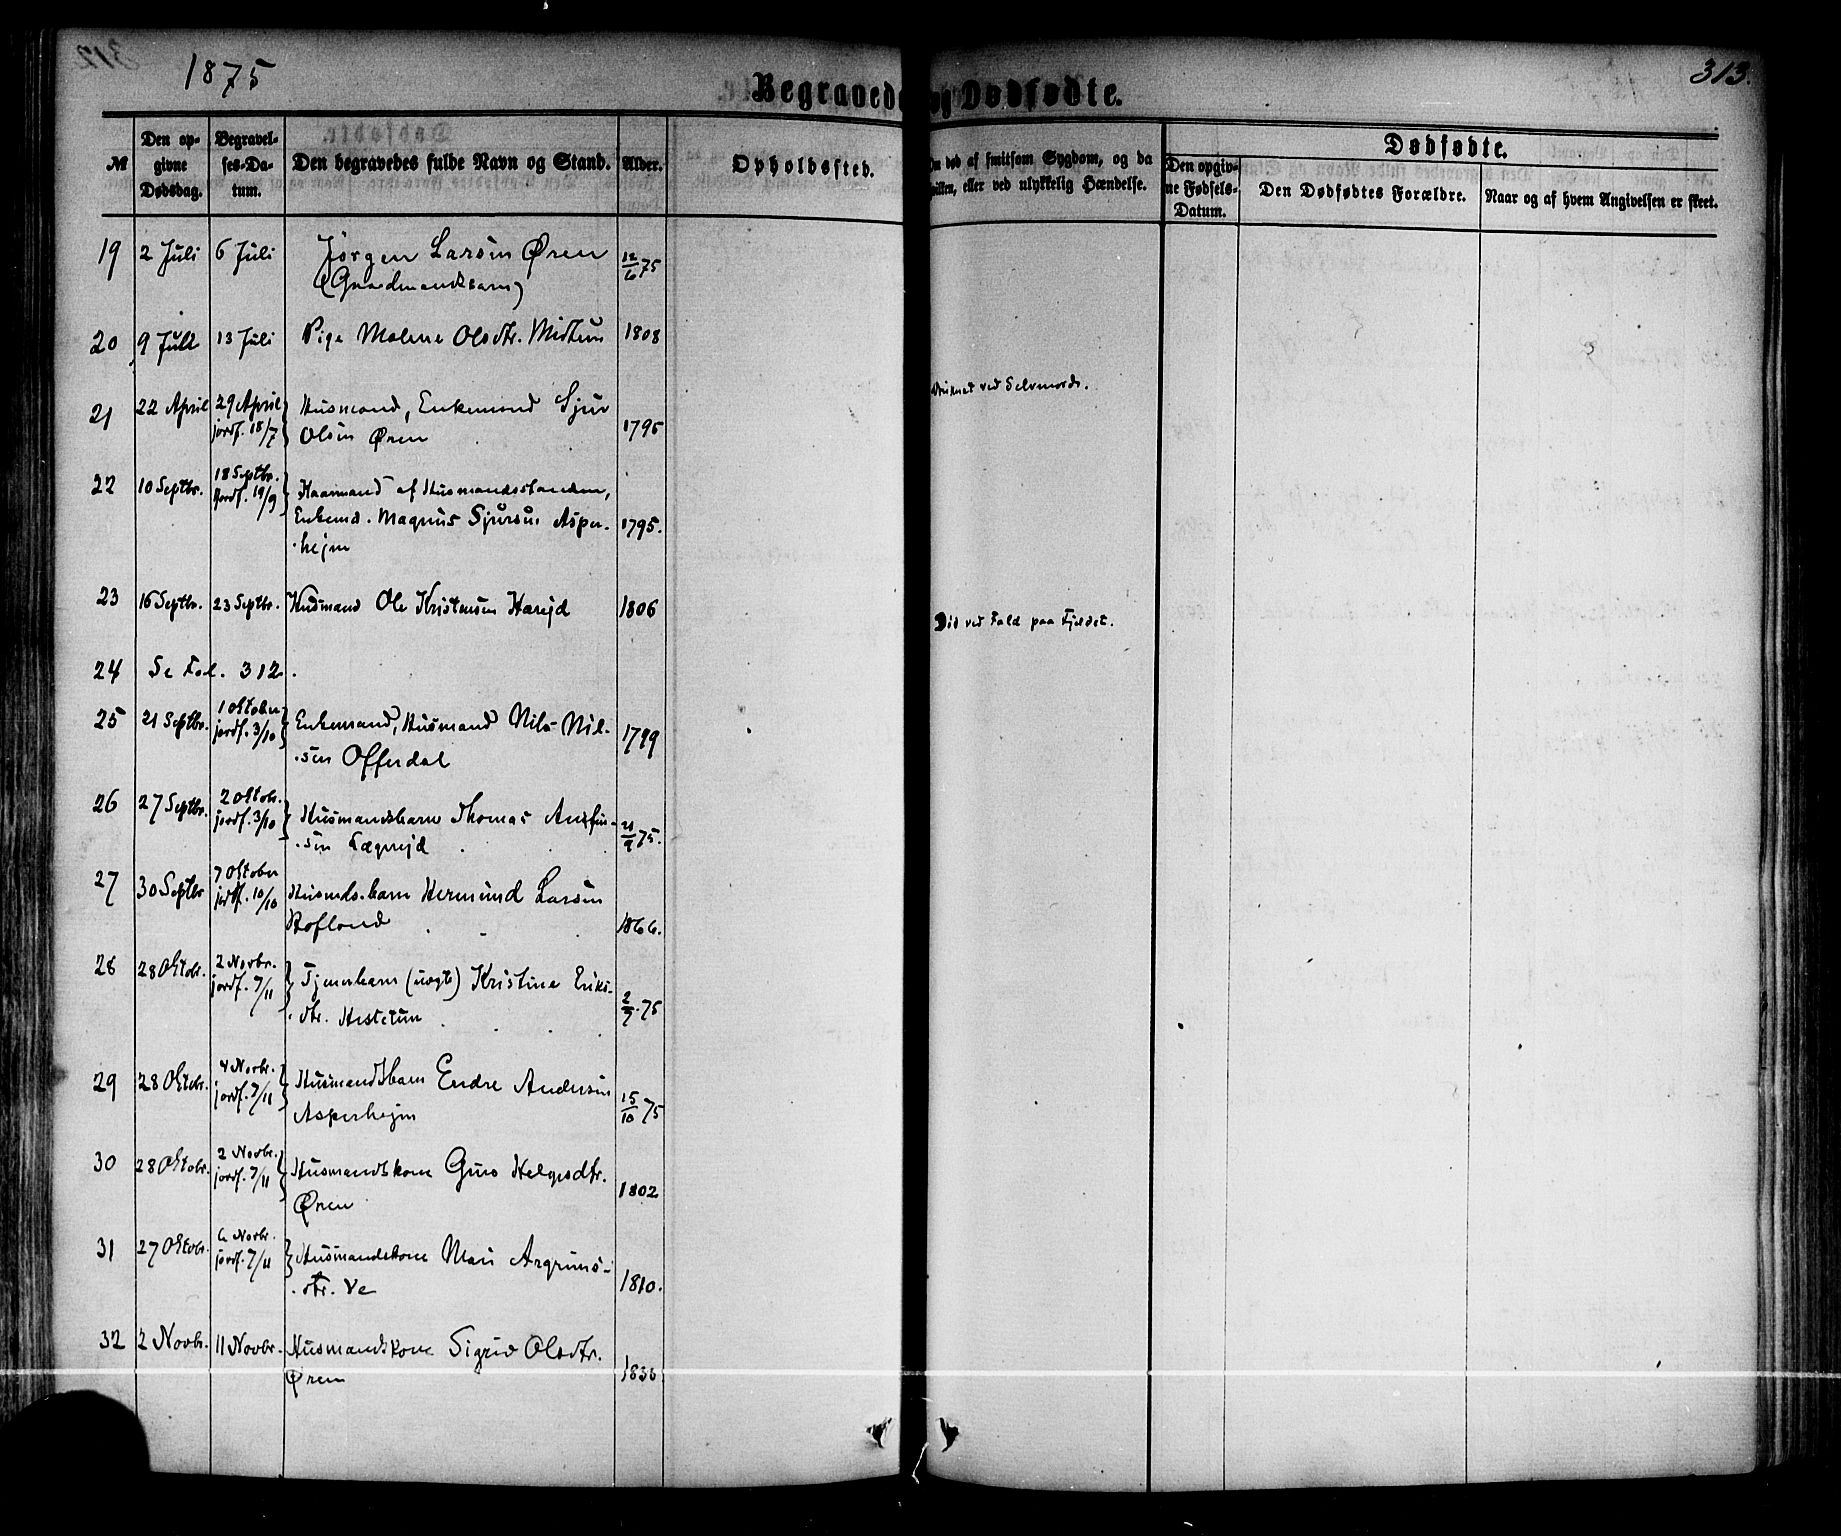 1875
313.
Begravede og Dødfødte.
№
Den opgivne Dødsdag.
Begravelses-Datum.
Den begravedes fulde Navn og Stand.
Alder.
Opholdssted.
død af smitsom Sygdom, og da
eller ved ulykkelig Hændelse.
Dødfødte.
Den opgivne Fødsels-Datum.
Den Dødfødtes Forældre.
Naar og af hvem Angivelsen er skeet.
19 2 Juli 6 Juli Jørgen Larsen Øren 12/6 75
(Gaardmandsbarn)
20 9 Juli 13 Juli Pige Malene Olsdtr. Midtun 1808
21 22 April 29 April Husmand, Enkemand Sjur
jordf. 18/7 Olsen Øren 1795
ved Selvmord.
22 10 Septbr. 18 Septbr. Kaarmand af Husmandsstanden,
jordf. 19/9 Enkemd. Magnus Sjursen Asper- 1795.
hejm
23 16 Septbr. 23 Septbr. Husmand Ole Kristensen Harejd 1806
Død ved Fald paa Fjeldet.
24 Se Fol. 312.
25 21 Septbr. 1 Oktober Enkemand, Husmand Nils Nil-
jordf. 3/10 sen Offerdal 1799
26 27 Septbr. 2 Oktobr. Husmandsbarn Thomas Andfin-
jordf. 3/10 sen Lægrejd 21/9 75.
27 30 Septbr 7 Oktober Husmds.barn Hermund Larsen
jordf. 10/10 Hofland 1866.
28 28 Oktobr. 2 Novbr. Tjenerbarn (uægte) Kristine Eriks-
jordf. 7/11 dtr. Hestetun 2/7 75
29 28 Oktobr. 4 Novbr. Husmandsbarn Endre Andersen
jordf. 7/11 Asperhejm 15/10 75
30 28 Oktobr. 2 Novbr. Husmandskone Guro Helgesdtr.
jordf. 7/11 Øren 1802
31 27 Oktobr. 6 Novbr. Husmandskone Mari Asgrims-
jordf. 7/11 dtr. Ve 1810.
32 2 Novbr. 11 Novbr. Husmandskone Sigrid Olsdtr.
Øren 1836